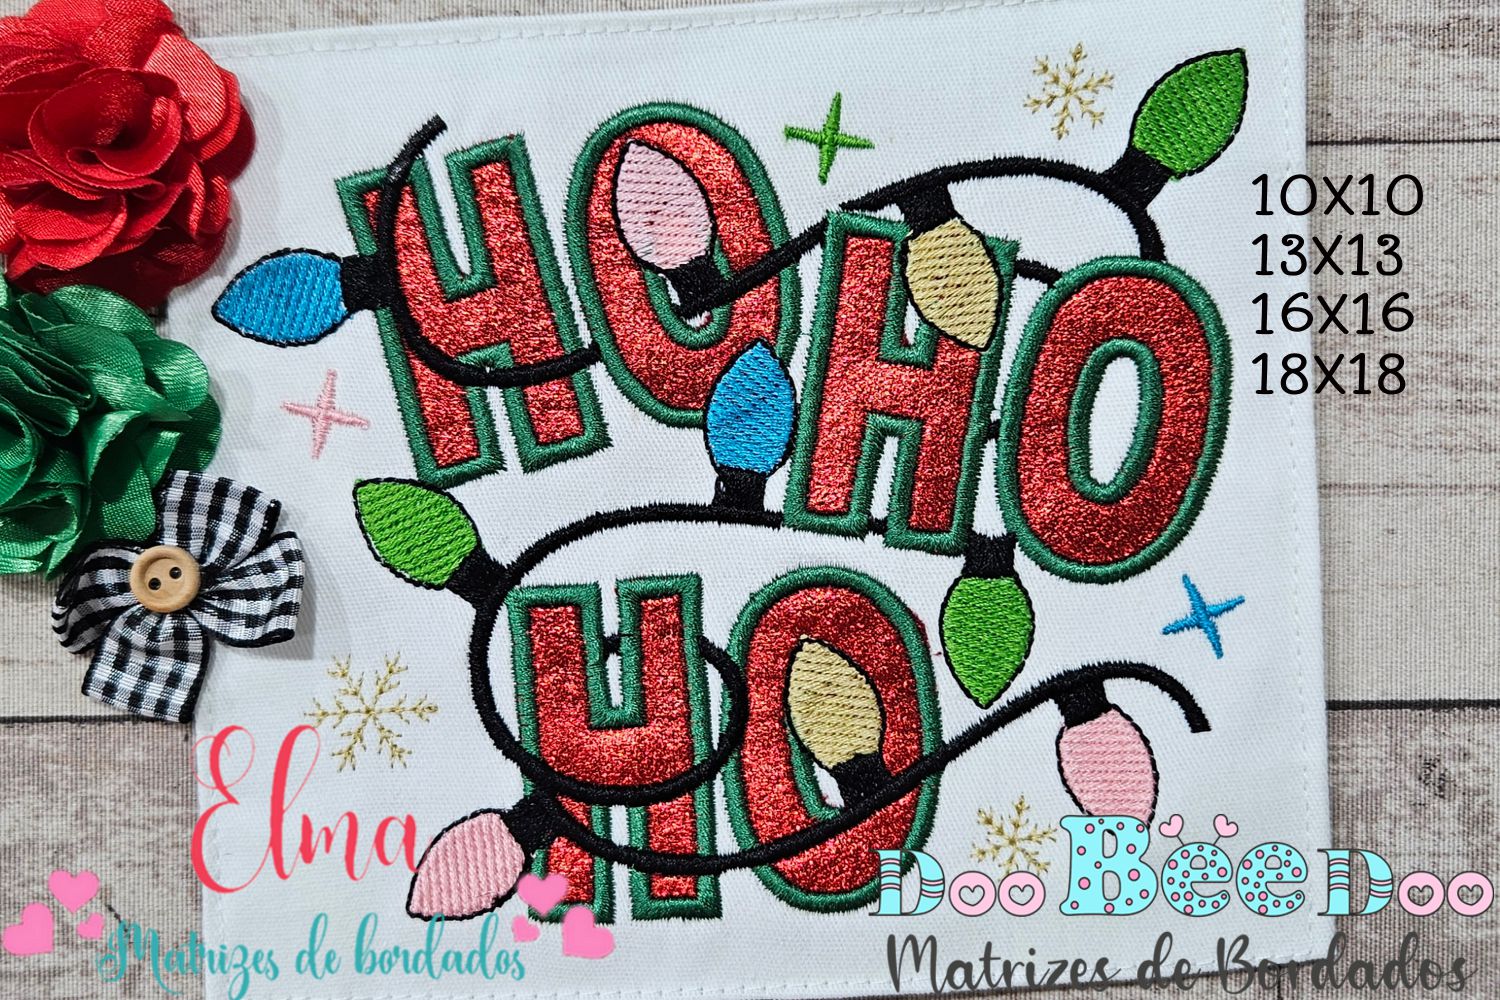 HO
HO
HO
10X10
13X13
16X16
18X18
Elma
Matrizes de bordados
Doo Bee Doo
Matrizes de Bordados